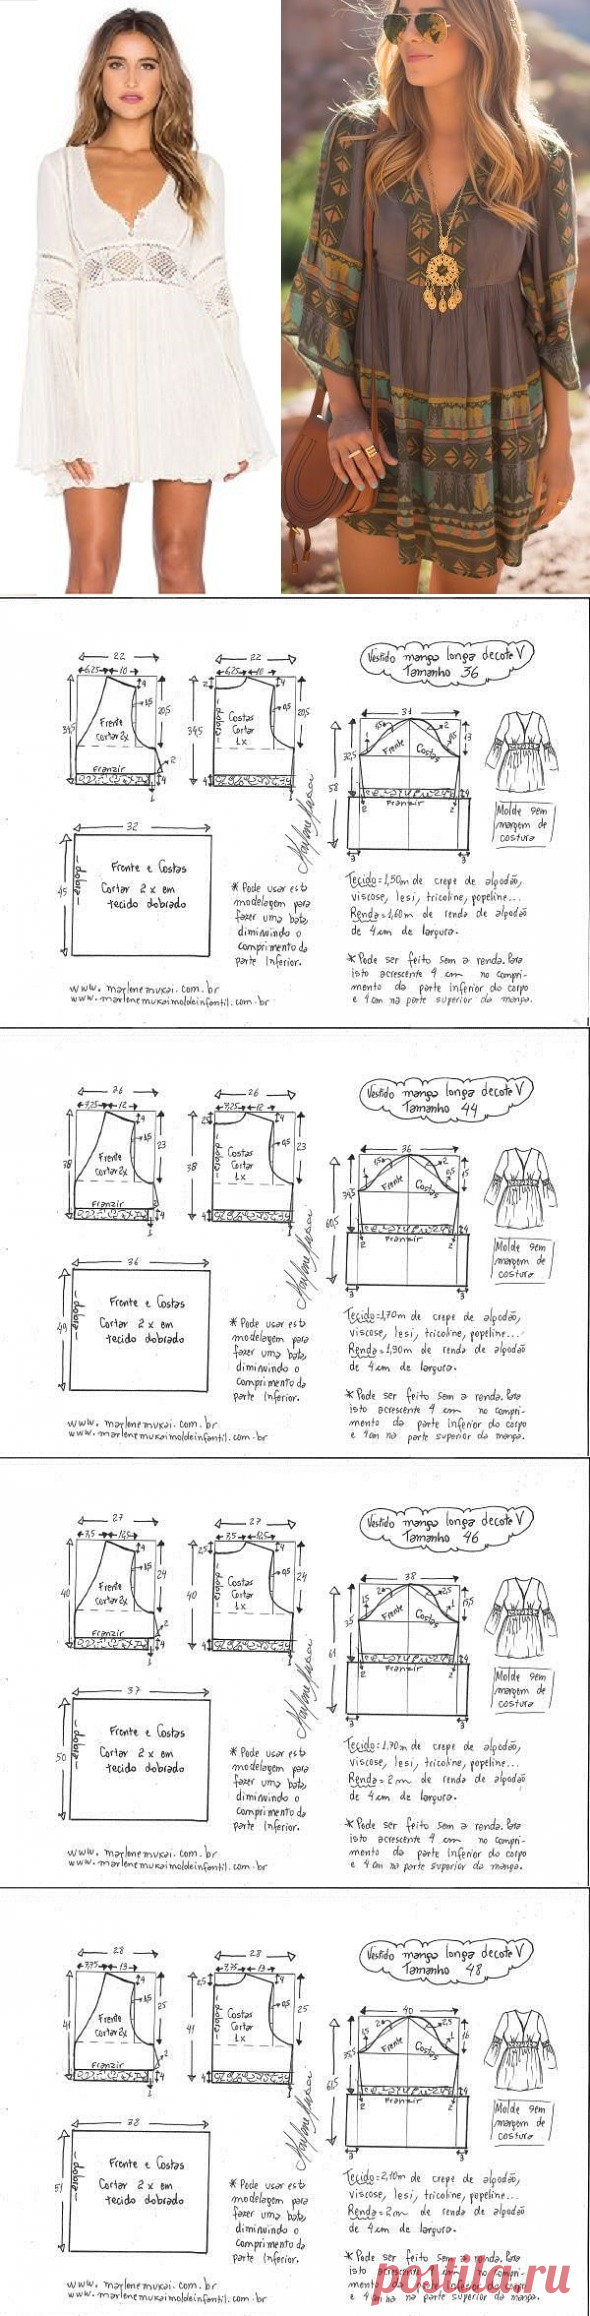 Vestido manga longa decote V
Tamanho 36
22
6,25 10
4
1,5
20,5
34,5
Frente
cortar 2x
Franzir
2
4
1
22
6,25 10
2
4
0,5
20,5
34,5
-dobra-
Costas
Cortar
1x
4
31
2
13
32,5
58
Frente
Costas
Franzir
2
2
4
3
3
Molde sem
margem de
costura
32
45
-dobra-
Frente e Costas
Cortar 2 x em
tecido dobrado
* Pode usar esta
modelagem para
fazer uma bata,
diminuindo o
comprimento da
parte Inferior.
Tecido = 1,50m de crepe de algodão,
viscose, lesi, tricoline, popeline...
Renda = 1,60m de renda de algodão
de 4 cm de largura.
* Pode ser feito sem a renda. Para
isto acrescente 4 cm no compri-
mento da parte Inferior do corpo
e 4 cm na parte superior da manga.
www.marlenemukai.com.br
www.marlenemukaimoldeinfantil.com.br
Vestido manga longa decote V
Tamanho 44
26
7,25 12
4
1,5
23
38
Frente
cortar 2x
Franzir
4
1
26
7,25 12
4
0,5
23
38
-dobra-
Costas
Cortar
1x
4
36
2
0,5
15
34,5
60,5
Frente
Costas
Franzir
2
2
4
3
3
Molde sem
margem de
costura
36
49
-dobra-
Frente e Costas
Cortar 2 x em
tecido dobrado
* Pode usar esta
modelagem para
fazer uma bata,
diminuindo o
comprimento da
parte Inferior.
Tecido = 1,70m de crepe de algodão,
viscose, lesi, tricoline, popeline...
Renda = 1,90m de renda de algodão
de 4 cm de largura.
* Pode ser feito sem a renda. Para
isto acrescente 4 cm no compri-
mento da parte Inferior do corpo
e 4 cm na parte superior da manga.
www.marlenemukai.com.br
www.marlenemukaimoldeinfantil.com.br
Vestido manga longa decote V
Tamanho 46
27
7,5 12,5
4
1,5
24
40
Frente
cortar 2x
Franzir
2
4
1
27
7,5 12,5
2,5
4
0,5
24
40
-dobra-
Costas
Cortar
1x
4
38
2
2,5
1
15,5
35
61
Frente
Costas
Franzir
2
2
4
3
3
Molde sem
margem de
costura
37
50
-dobra-
Frente e Costas
Cortar 2 x em
tecido dobrado
* Pode usar esta
modelagem para
fazer uma bata,
diminuindo o
comprimento da
parte Inferior.
Tecido = 1,70m de crepe de algodão,
viscose, lesi, tricoline, popeline...
Renda = 2m de renda de algodão
de 4 cm de largura.
* Pode ser feito sem a renda. Para
isto acrescente 4 cm no compri-
mento da parte Inferior do corpo
e 4 cm na parte superior da manga.
www.marlenemukai.com.br
www.marlenemukaimoldeinfantil.com.br
Vestido manga longa decote V
Tamanho 48
28
7,75 13
4
1,5
25
41
Frente
cortar 2x
Franzir
2
4
1
28
7,75 13
2,5
4
0,5
25
41
-dobra-
Costas
Cortar
1x
4
40
2
2,5
1
16
35,5
61,5
Frente
Costas
Franzir
2
2
4
3
3
Molde sem
margem de
costura
38
51
-dobra-
Frente e Costas
Cortar 2 x em
tecido dobrado
* Pode usar esta
modelagem para
fazer uma bata,
diminuindo o
comprimento da
parte Inferior.
Tecido = 2,10m de crepe de algodão,
viscose, lesi, tricoline, popeline...
Renda = 2m de renda de algodão
de 4 cm de largura.
* Pode ser feito sem a renda. Para
isto acrescente 4 cm no compri-
mento da parte Inferior do corpo
e 4 cm na parte superior da manga.
www.marlenemukai.com.br
www.marlenemukaimoldeinfantil.com.br
postila.ru